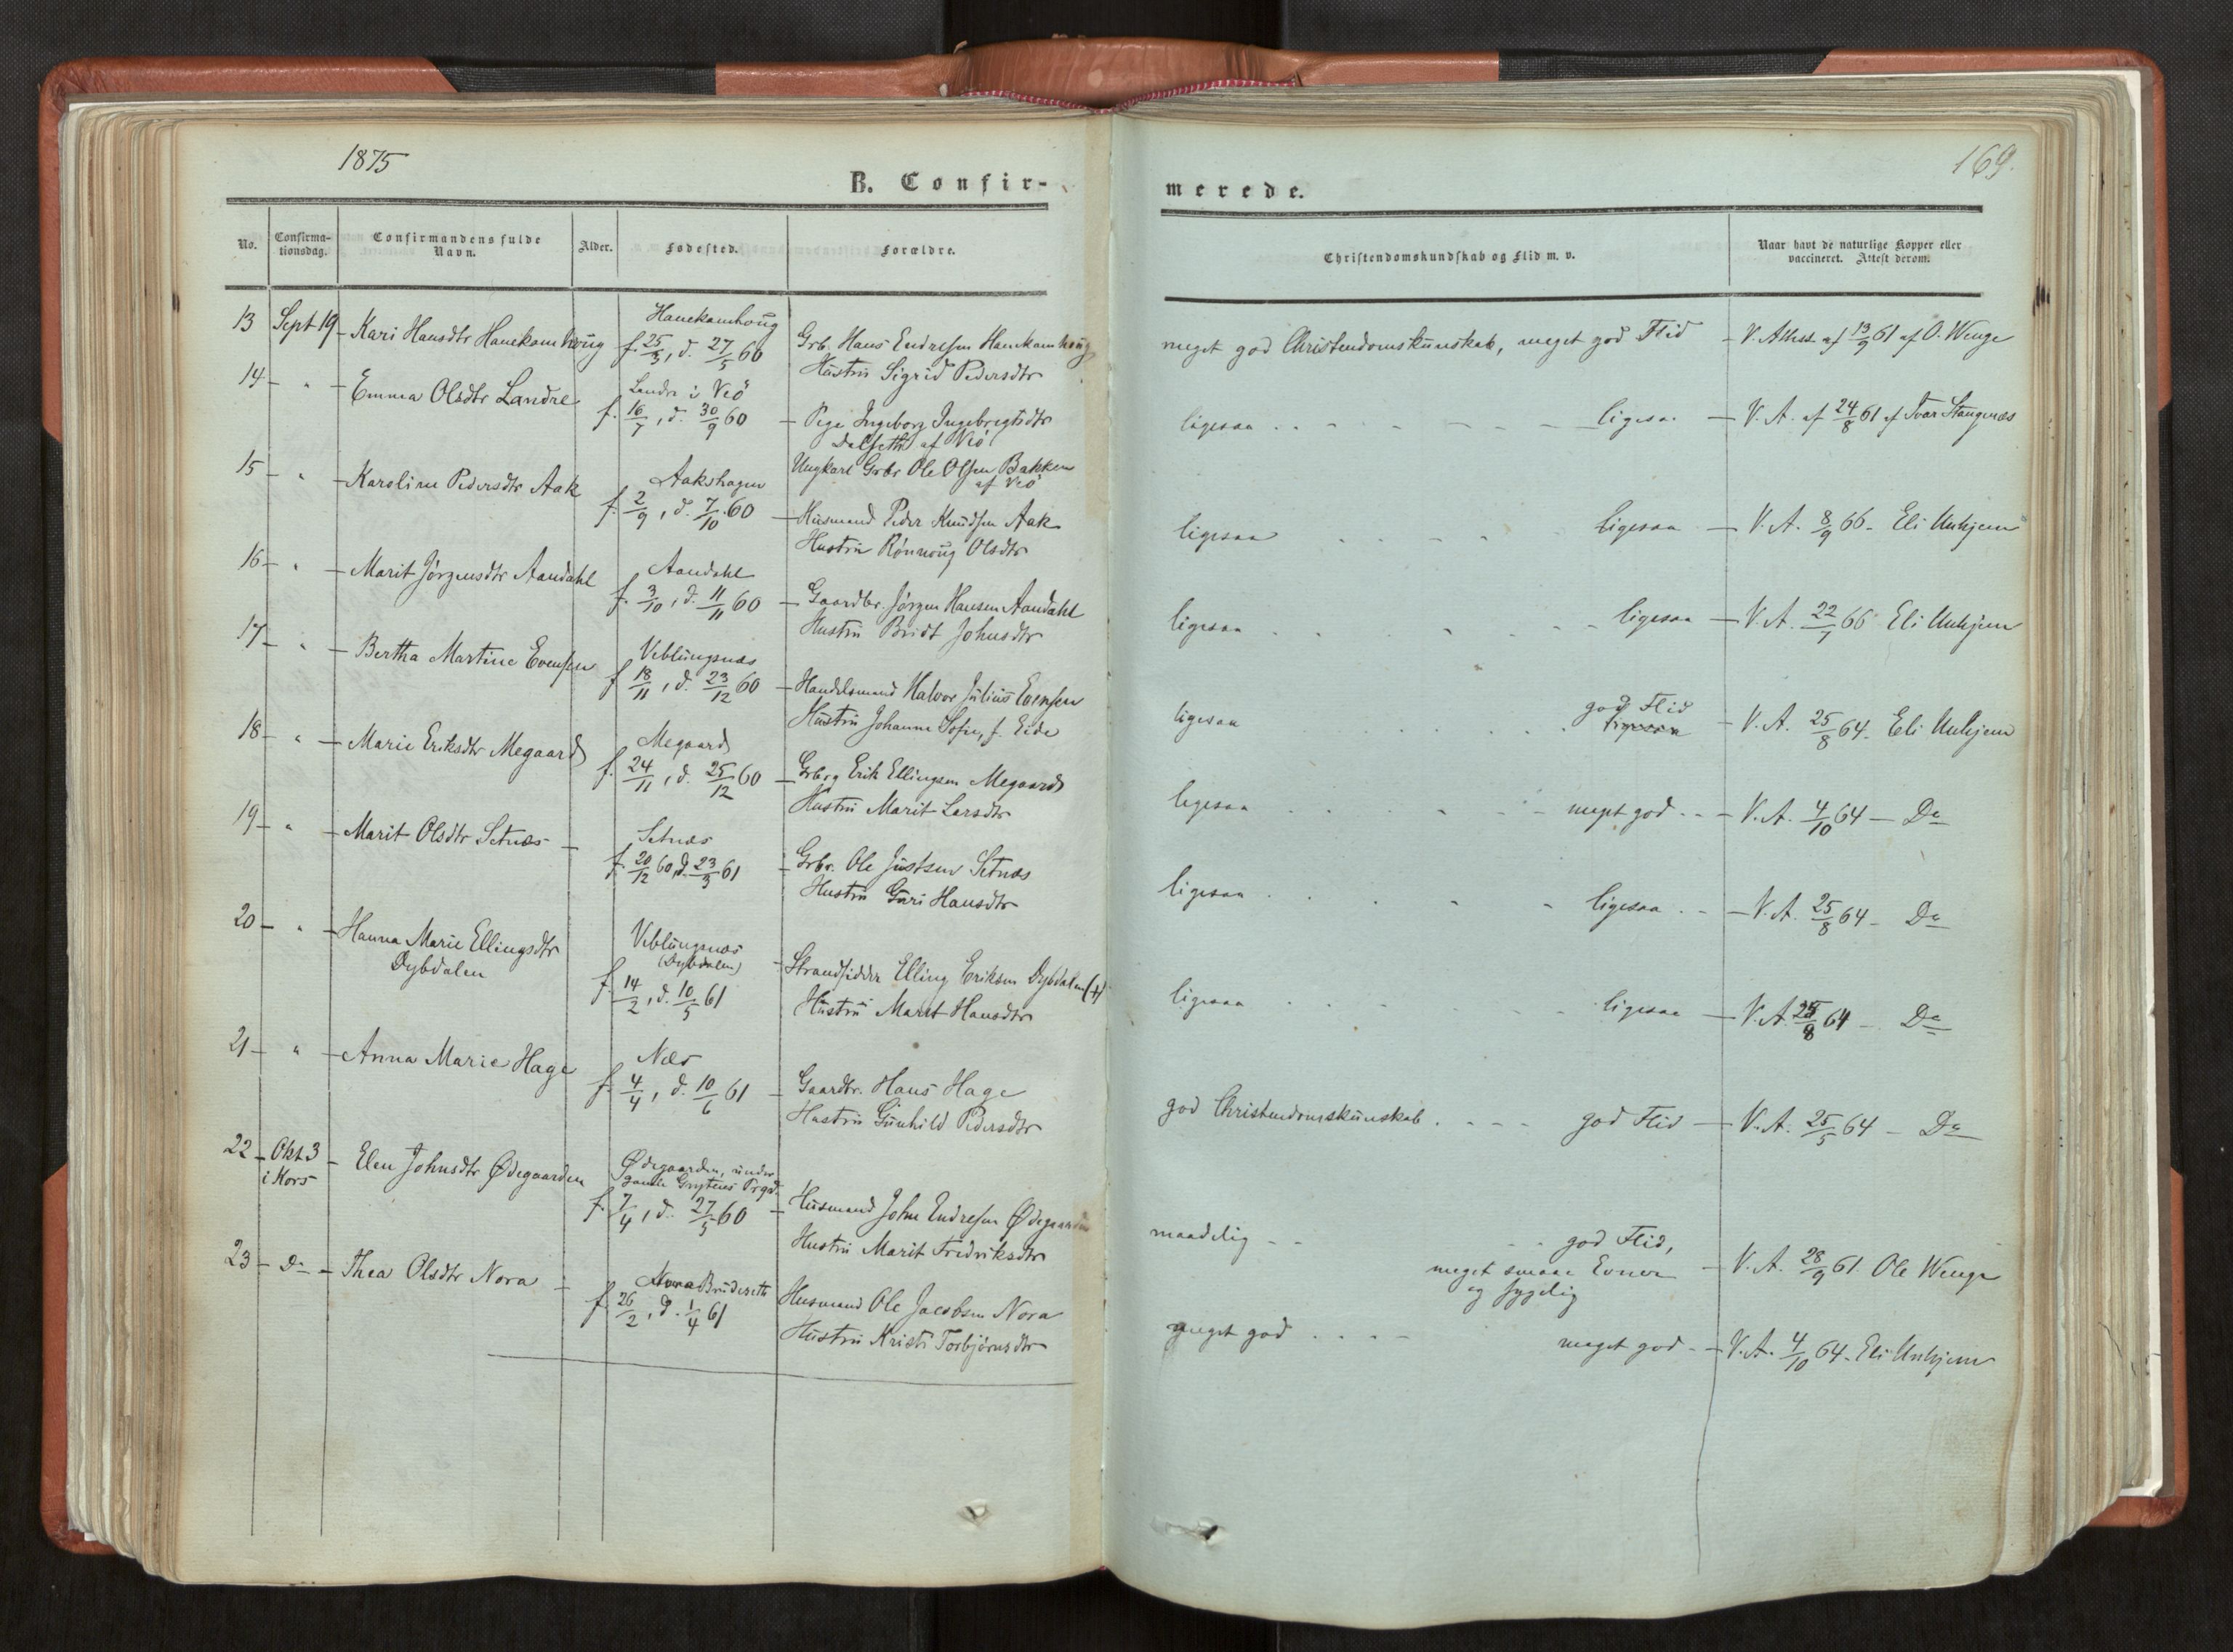 1875
B. Confir-
No.
Confirma-
tionsdag.
Confirmandens fulde
Navn.
Alder.
Fødested.
Forældre.
13 Sept 19 - Kari Hansdtr Hanekamhoug
Hanekamhoug
f. 25/3, d. 27/5 60
Grb. Hans Endresen Hanekamhoug
Hustru Sigrid Pedersdtr
14 - " - Emma Olsdtr Landre
Landre i Veö
f. 16/7, d. 30/9 60
- Pige Ingeborg Ingebregtsdtr
Dalseth af Veö
Ungkarl Grbr Ole Olsen Bakken
af Veö
15 - " - Karoline Pedersdtr Aak
Aakshagen
f. 2/9, d. 7/10 60
- Husmand Peder Knudsen Aak
Hustru Rønnoug Olsdtr
16 - " - Marit Jørgensdtr Aandahl
Aandahl
f. 3/10, d. 11/11 60
- Gaardbr. Jørgen Hansen Aandahl
Hustru Bridt Johnsdtr
17 - " - Bertha Martine Evensen
Veblungsnæs
f. 18/11, d. 23/12 60
- Handelsmand Halvor Julius Evensen
Hustru Johanne Sofie, f. Eide
18 - " - Marie Eriksdtr Megaard
Megaard
f. 24/11, d. 25/12 60
- Grbrg Erik Ellingsen Megaard
Hustru Marit Larsdtr
19 - " - Marit Olsdtr Setnæs -
Setnæs
f. 20/12 60, d. 23/3 61
- Grbr. Ole Justsen Setnæs
Hustru Guri Hansdtr
20 - " - Hanna Marie Ellingsdtr
Dybdalen
Veblungsnæs
(Dybdalen)
f. 14/2, d. 10/5 61
- Strandsidder Elling Eriksen Dybdalen (+)
Hustru Marit Hansdtr
21 - " - Anna Marie Hage
Næs
f. 4/4, d. 10/6 61
- Gaardbr. Hans Hage
Hustru Gunhild Pedersdtr
22 - Okt 3
i Kors
- Elen Johnsdtr Ødegaarden
Ødegaarden, under
Gryttens Prgd.
f. 7/4, d. 27/5 60
- Husmand John Endresen Ødegaarden
Hustru Marit Fredriksdtr
23 - Do - Thea Olsdtr Nora -
Nora Brudeseth
f. 26/2, d. 1/4 61
Husmand Ole Jacobsen Nora
Hustru Kristi Torbjørnsdtr
169.
merede.
Christendomskundskab og Flid m. v.
Naar havt de naturlige Kopper eller
vaccineret. Attest derom.
meget god Christendomskunskab, meget god Flid - V. Attest af 13/9 61 af O. Wenge
ligesaa - - - - ligesaa - V. A. af 24/8 61 af Ivar Stangenæs
ligesaa - - - - ligesaa - V. A. 8/9 66 - Eli Unhjem
ligesaa - - - - ligesaa - V. A. 22/7 66 - Eli Unhjem
god Flid
ligesaa - - - - ligesaa - V. A. 25/8 64 - Eli Unhjem
ligesaa - - - - meget god - - V. A. 4/10 64 - Do
ligesaa - - - - ligesaa - - V. A. 25/8 64 - Do
ligesaa - - - - ligesaa - V. A. 25/8 64 - Do
god Christendomskunskab - - - - god Flid - V. A. 25/5 64 - Do
maadelig - - - - god Flid,
meget smaae Evner
og sygelig
- V. A. 28/9 61. Ole Wenge
meget god - - - - meget god - - V. A. 4/10 64 - Eli Unhjem